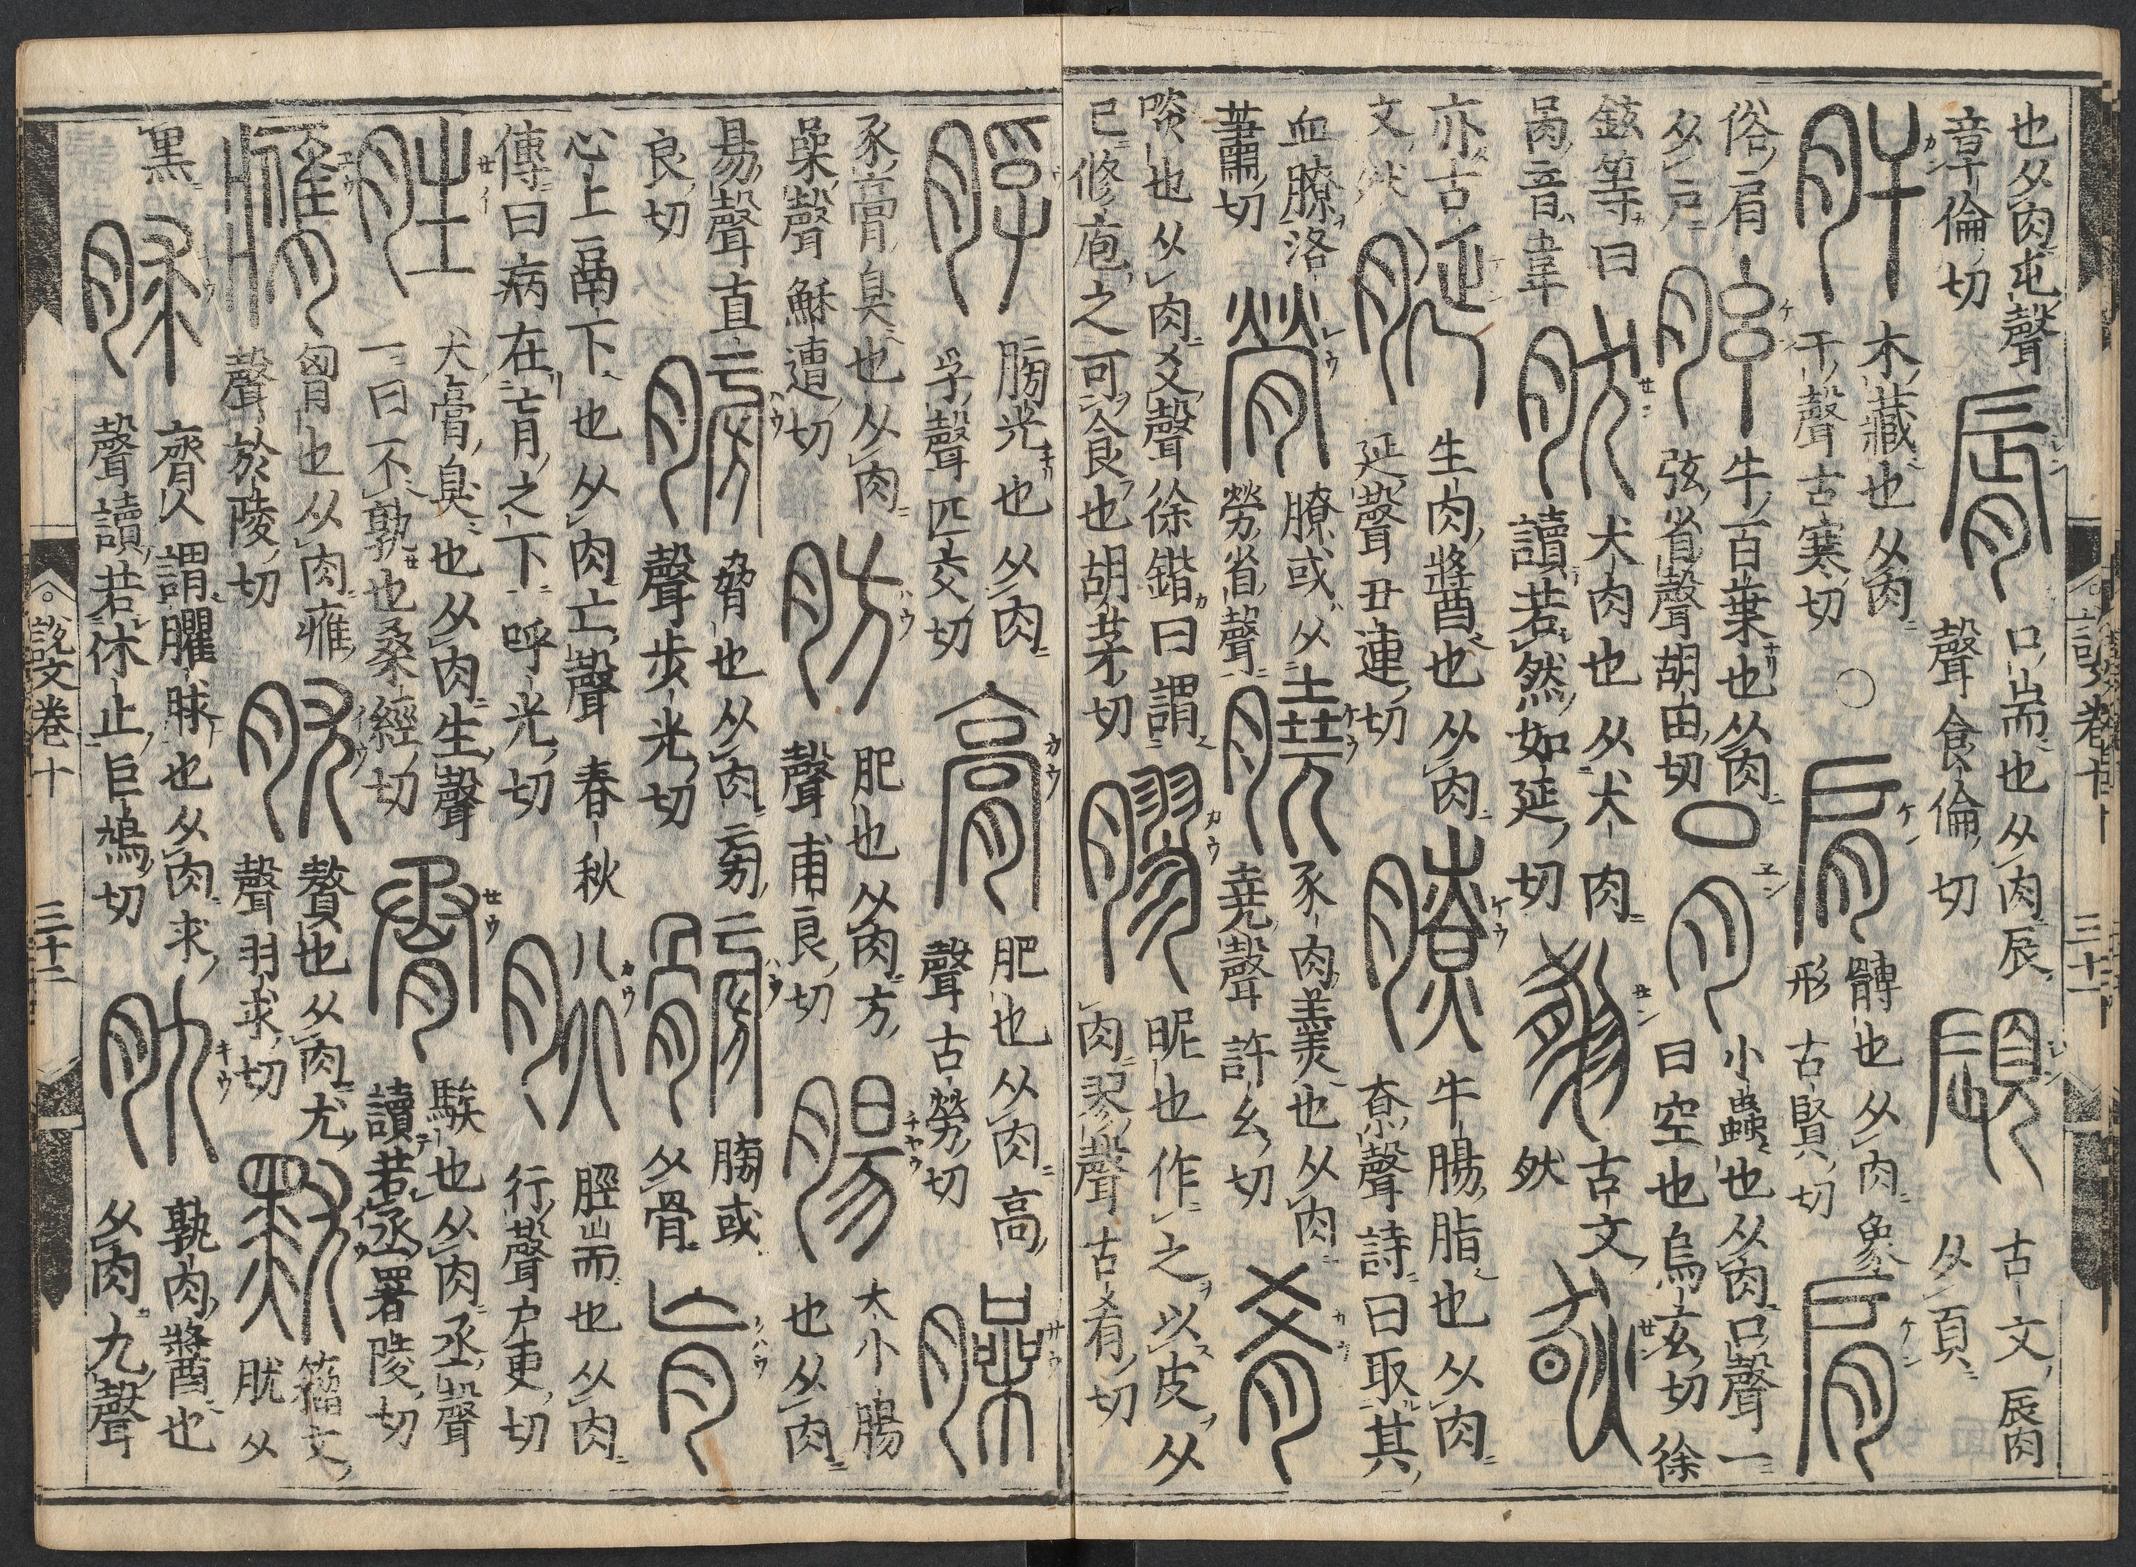 也从肉屯聲章倫切 脣 口耑也从肉辰聲食倫切 顊 古文脣从頁
肝 木藏也从肉干聲古寒切 ○ 肩 髆也从肉象形古賢切 肩
俗肩从戶 胘 牛百葉也从肉弦省聲胡田切 肙 小蟲也从肉口聲一曰空也烏玄切徐
鉉等曰咼音韋 肰 犬肉也从犬肉讀若然如延切 古文肰
亦古文肰 脠 生肉醬也从肉延聲丑連切 膫 牛腸脂也从肉尞聲詩曰取其
血膫洛蕭切 膋 膫或从勞省聲 膮 豕肉羹也从肉堯聲許幺切 肴
啖也从肉爻聲徐鍇曰謂已修庖之可食也胡茅切 膠 昵也作之以皮从肉翏聲古肴切
脬 膀光也从肉孚聲匹交切 膏 肥也从肉高聲古勞切 臊
豕膏臭也从肉喿聲穌遭切 肪 肥也从肉方聲甫良切 腸 大小腸也从肉
昜聲直良切 膀 脅也从肉旁聲步光切 髈 膀或从骨 肓
心上鬲下也从肉亡聲春秋傳曰病在肓之下呼光切 胻 脛耑也从肉行聲戶更切
胜 犬膏臭也从肉生聲一曰不孰也桑經切 脀 騃也从肉丞聲讀若丞署陵切
膺 匈也从肉䧹聲於陵切 肬 贅也从肉尤聲羽求切 籀文肬从
黑 脙 齊人謂臞脙也从肉求聲讀若休止巨鳩切 肍 孰肉醬也从肉九聲
說文卷十 三十二